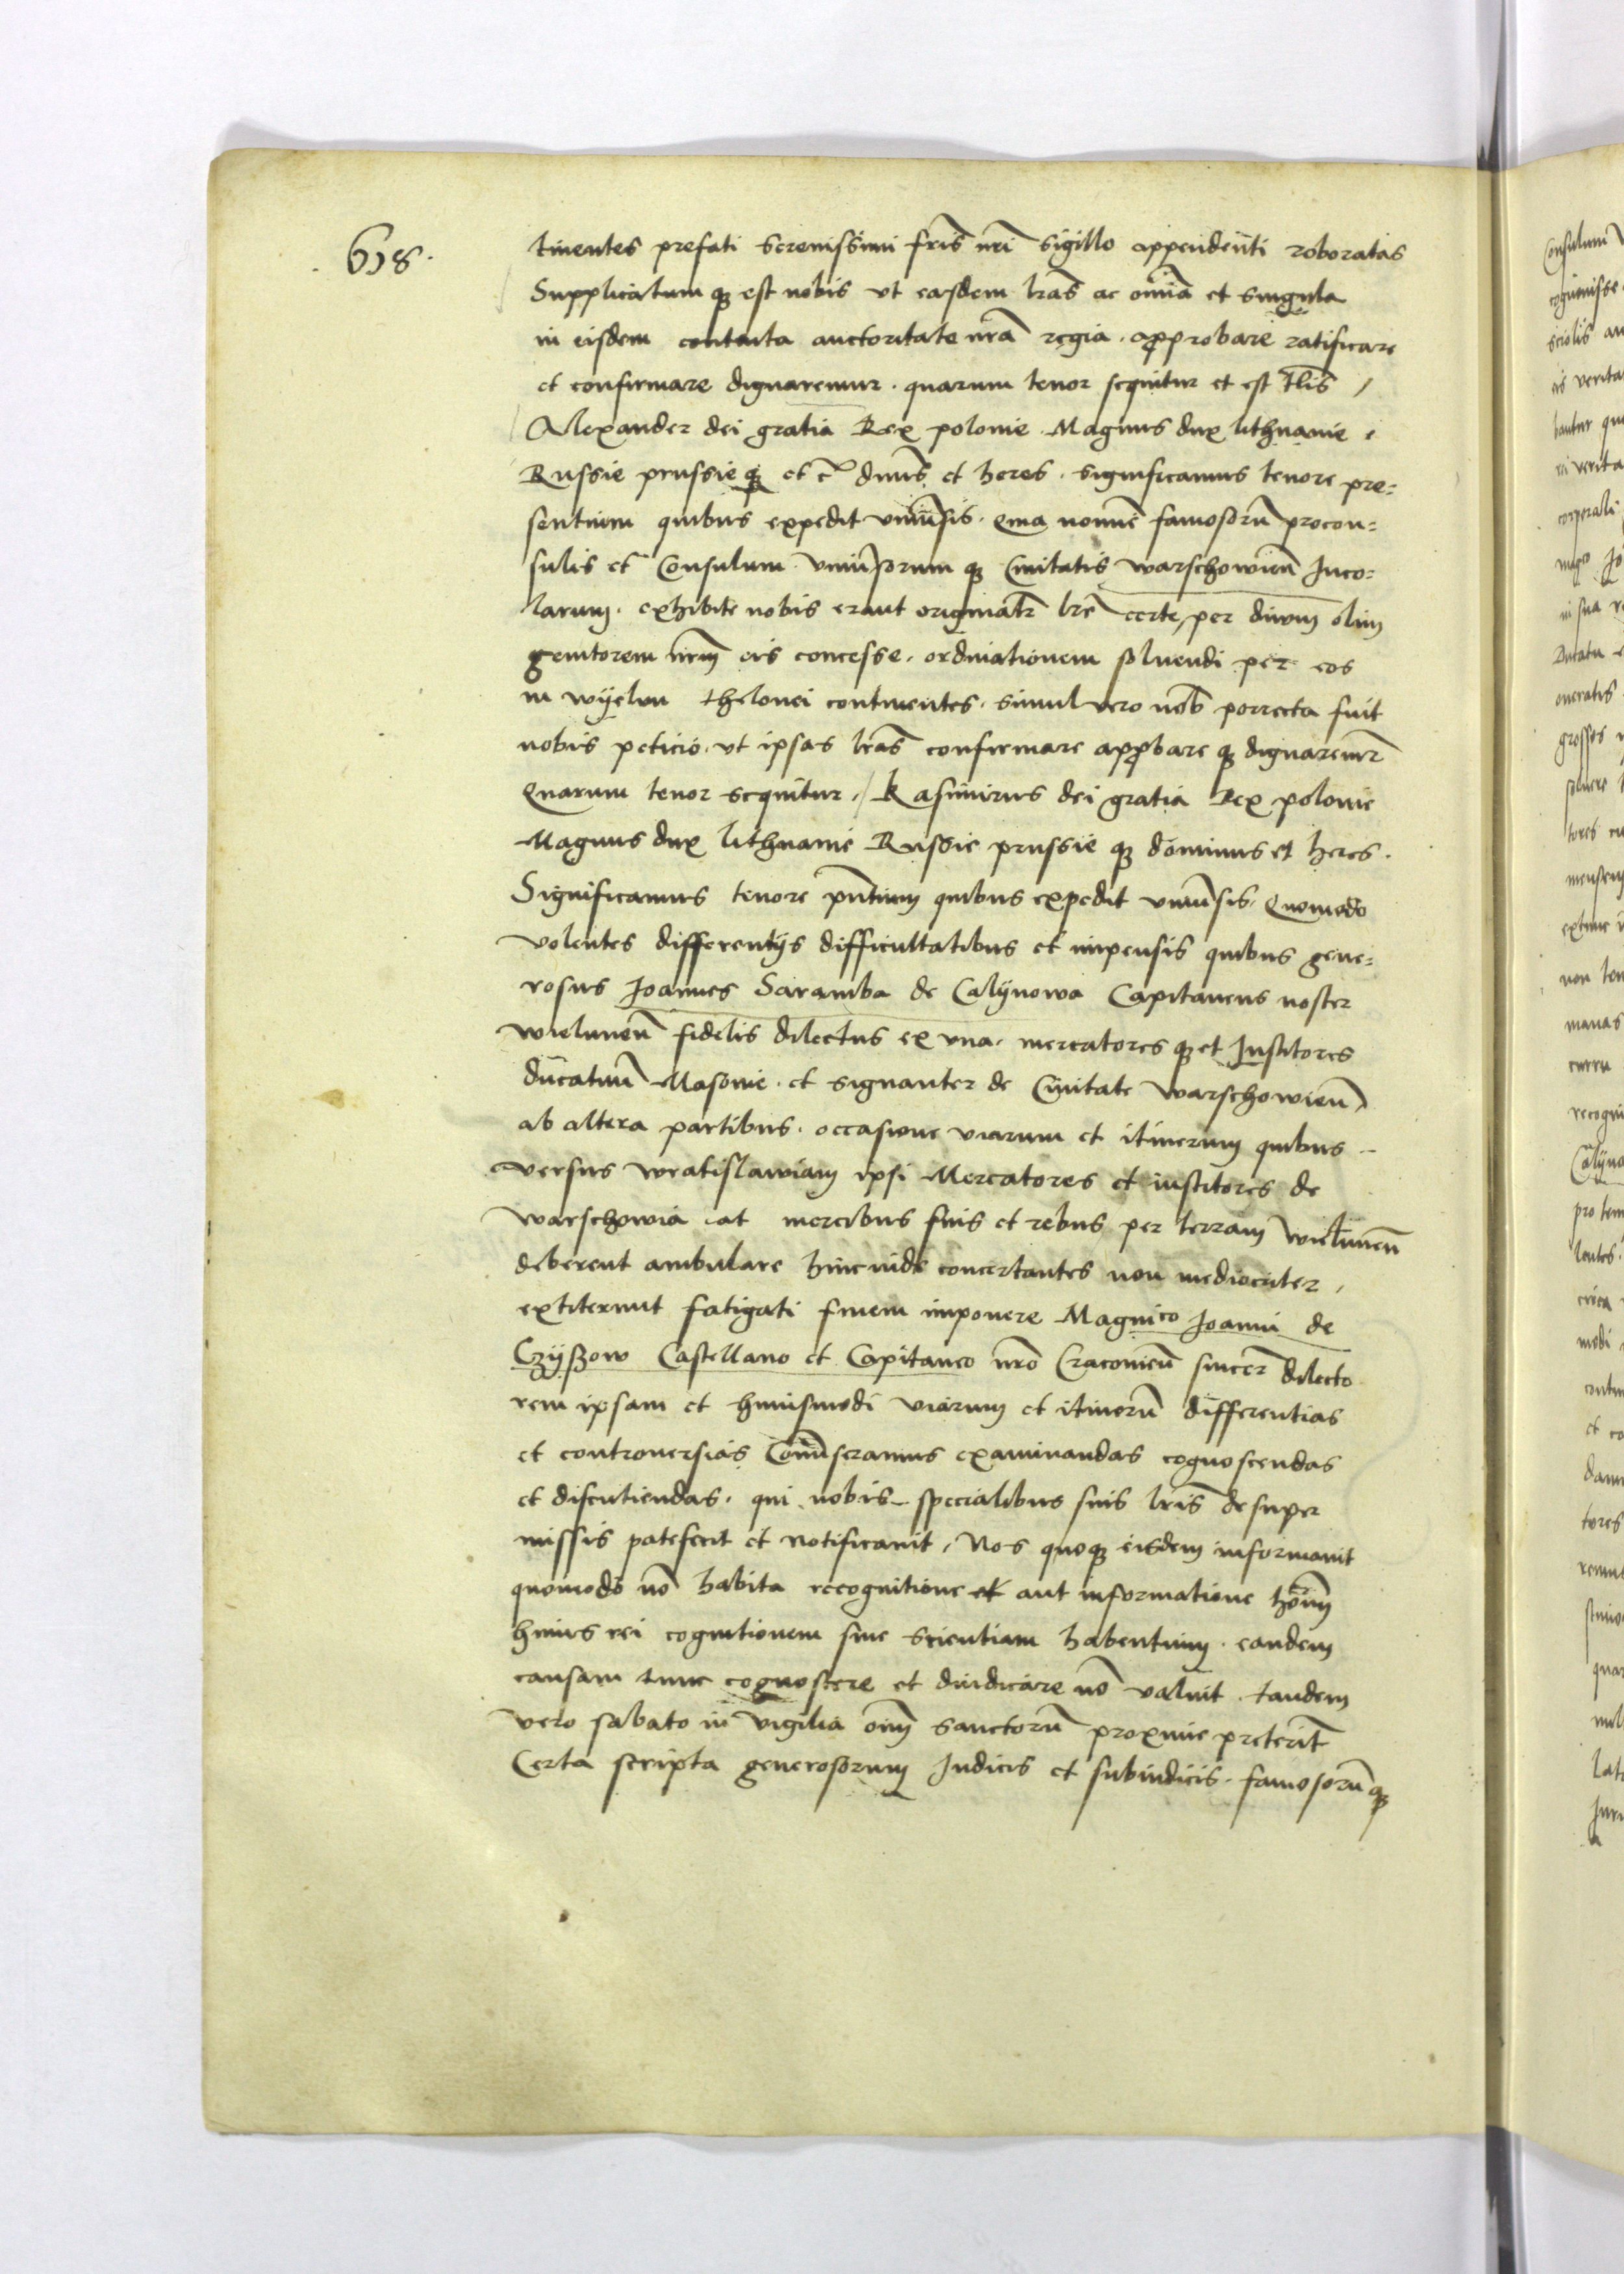 . 618.
tinentes prefati serenissimi fris nri sigillo appendenti roboratas
Supplicatum q3 est nobis vt easdem lras ac omia et singula
in eisdem contenta auctoritate nra regia. approbare ratificare
et confirmare dignaremur. quarum tenor sequitur et est tlis /
Alexander dei gratia Rex polonie Magnus dux lithuanie
Russie prussie q3 et c dnus et heres. significamus tenore pre=
sentium quibus expedit vniusis. Quia nomine famosoru procon=
sulis et Consulum vniusorum q3 Ciuitatis warschowien Inco=
larum. exhibite nobis erant originales lre certe, per diuum olim
genitorem nrm eis concesse. ordinationem soluendi per eos
in wyelun thelonei continentes. simul vero nob porrecta fuit
nobis peticio. vt ipsas lras confirmare appbare q3 dignaremr
Quarum tenor sequitur. / Kasimirus dei gratia Rex polonie
Magnus dux lithuanie Russie prussie q3 dominus et heres.
Significamus tenore pntium quibus expedit vniusis. Quomodo
volentes differentijs difficultatibus et impensis quibus gene=
rosus Joannes Saramba de Calijnowa Capitaneus noster
wielunen fidelis dilectus ex vna. mercatores q3 et Institores
ducatuu Masouie. et signanter de Ciuitate warschowien,
ab altera partibus. occasione viarum et itinerum quibus
versus wratislawiam ipsi Mercatores et institores de
warschowia cat mercibus suis et rebus per terram wielunen
deberent ambulare hincinde concertantes non mediociter,
extiterunt fatigati finem imponere Magnico Joanni de
Czyßow Castellano et Capitaneo nro Cracouien sincer dilecto
rem ipsam et huiusmodi viarum et itineru differentias
et controuersias Comiseramus examinandas cognoscendas
et discutiendas. qui nobis specialibus suis lris desuper
missis patefecit et notificauit, Nos quoq3 eisdem informauit
quomodo no habita recognitione et aut informatione hoim
huius rei cognitionem siue scientiam habentium. eandem
causam tunc cognoscere et diiudicare no valuit. tandem
vero sabato in vigilia oim sanctoru proxime preterit
Certa scripta generosorum Judicis et subiudicis. famosoru q3